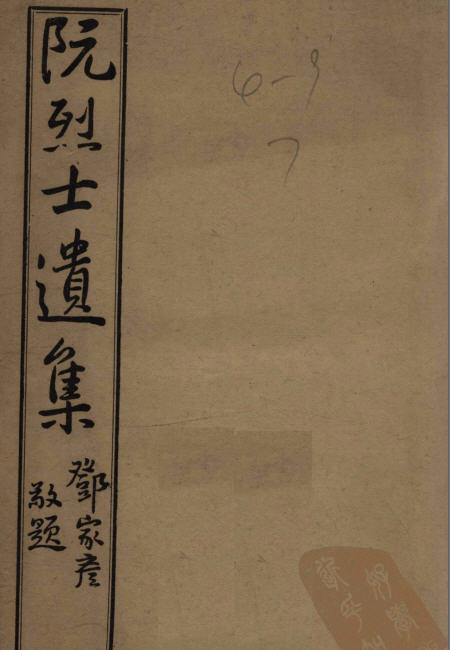 阮烈士遺集
鄧家彥
敬題
6-9
7